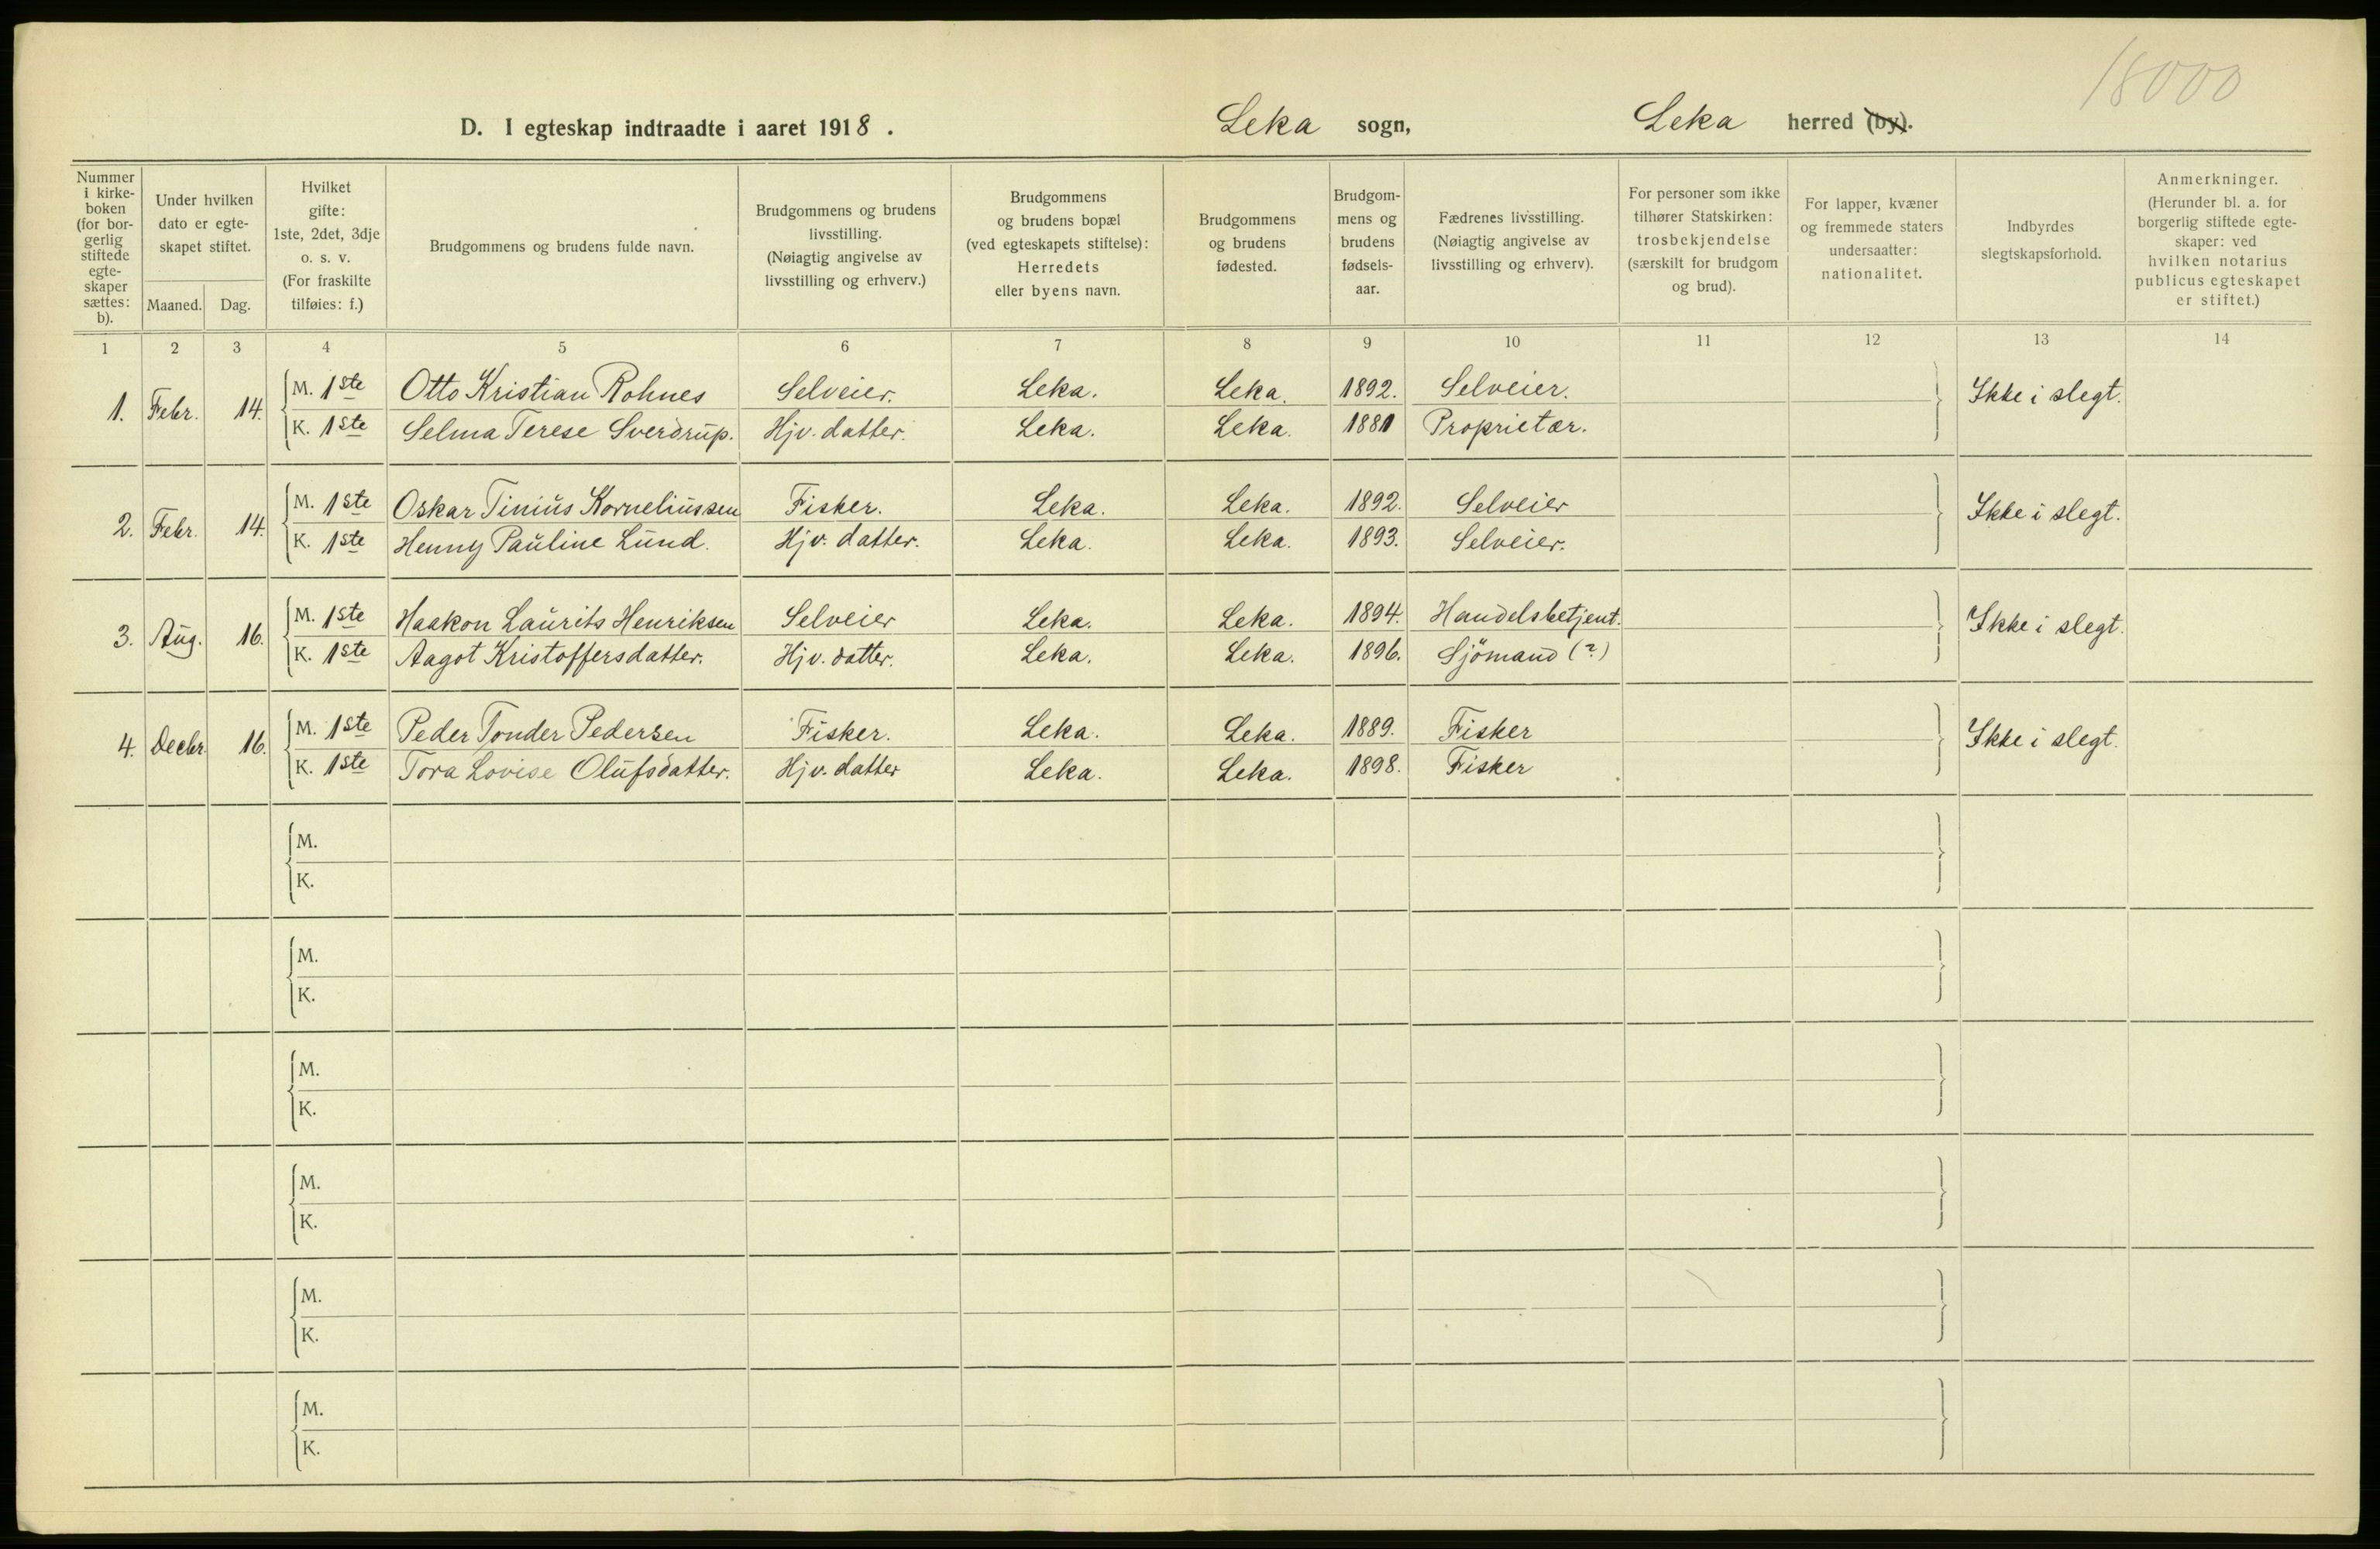 18000
D. I egteskap indtraadte i aaret 1918. Leka sogn, Leka herred (by).
Nummer i kirke-boken (for bor-gerlig stiftede egte-skaper sættes: b).
Under hvilken dato er egte-skapet stiftet.
Maaned. Dag.
Hvilket gifte: 1ste, 2det, 3dje o. s. v. (For fraskilte tilføies: f.)
Brudgommens og brudens fulde navn.
Brudgommens og brudens livsstilling. (Nøiagtig angivelse av livsstilling og erhverv.)
Brudgommens og brudens bopæl (ved egteskapets stiftelse): Herredets eller byens navn.
Brudgommens og brudens fødested.
Brudgom-mens og brudens fødsels-aar.
Fædrenes livsstilling. (Nøiagtig angivelse av livsstilling og erhverv).
For personer som ikke tilhører Statskirken: trosbekjendelse (særskilt for brudgom og brud).
For lapper, kvæner og fremmede staters undersaatter: nationalitet.
Indbyrdes slegtskapsforhold.
Anmerkninger. (Herunder bl. a. for borgerlig stiftede egte-skaper: ved hvilken notarius publicus egteskapet er stiftet.)
1 2 3 4 5 6 7 8 9 10 11 12 13 14
1. Febr. 14. M. 1ste Otto Kristian Rohnes Selveier. Leka. Leka. 1892. Selveier. Ikke i slegt.
K. 1ste Selma Terese Sverdrup. Hjv. datter. Leka. Leka. 1881 Proprietær.
2. Febr. 14. M. 1ste Oskar Tinius Korneliussen Fisker. Leka. Leka. 1892. Selveier Ikke i slegt.
K. 1ste Henny Pauline Lund. Hjv. datter. Leka. Leka. 1893. Selveier.
3. Aug. 16. M. 1ste Haakon Laurits Henriksen Selveier Leka. Leka. 1894. Handelsbetjent. Ikke i slegt.
K. 1ste Aagot Kristoffersdatter. Hjv. datter. Leka. Leka. 1896. Sjömand (?)
4. Decbr. 16. M. 1ste Peder Tonder Pedersen Fisker. Leka. Leka. 1889. Fisker Ikke i slegt.
K. 1ste Tora Lovise Olufsdatter. Hjv. datter Leka. Leka. 1898. Fisker
M.
K.
M.
K.
M.
K.
M.
K.
M.
K.
M.
K.